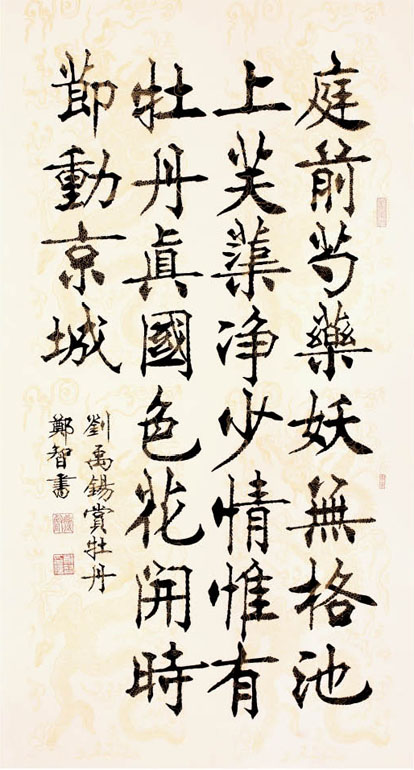 庭前芍藥妖無格池
上芙蕖净少情惟有
牡丹真國色花開時
節動京城
劉禹錫賞牡丹
鄭智書